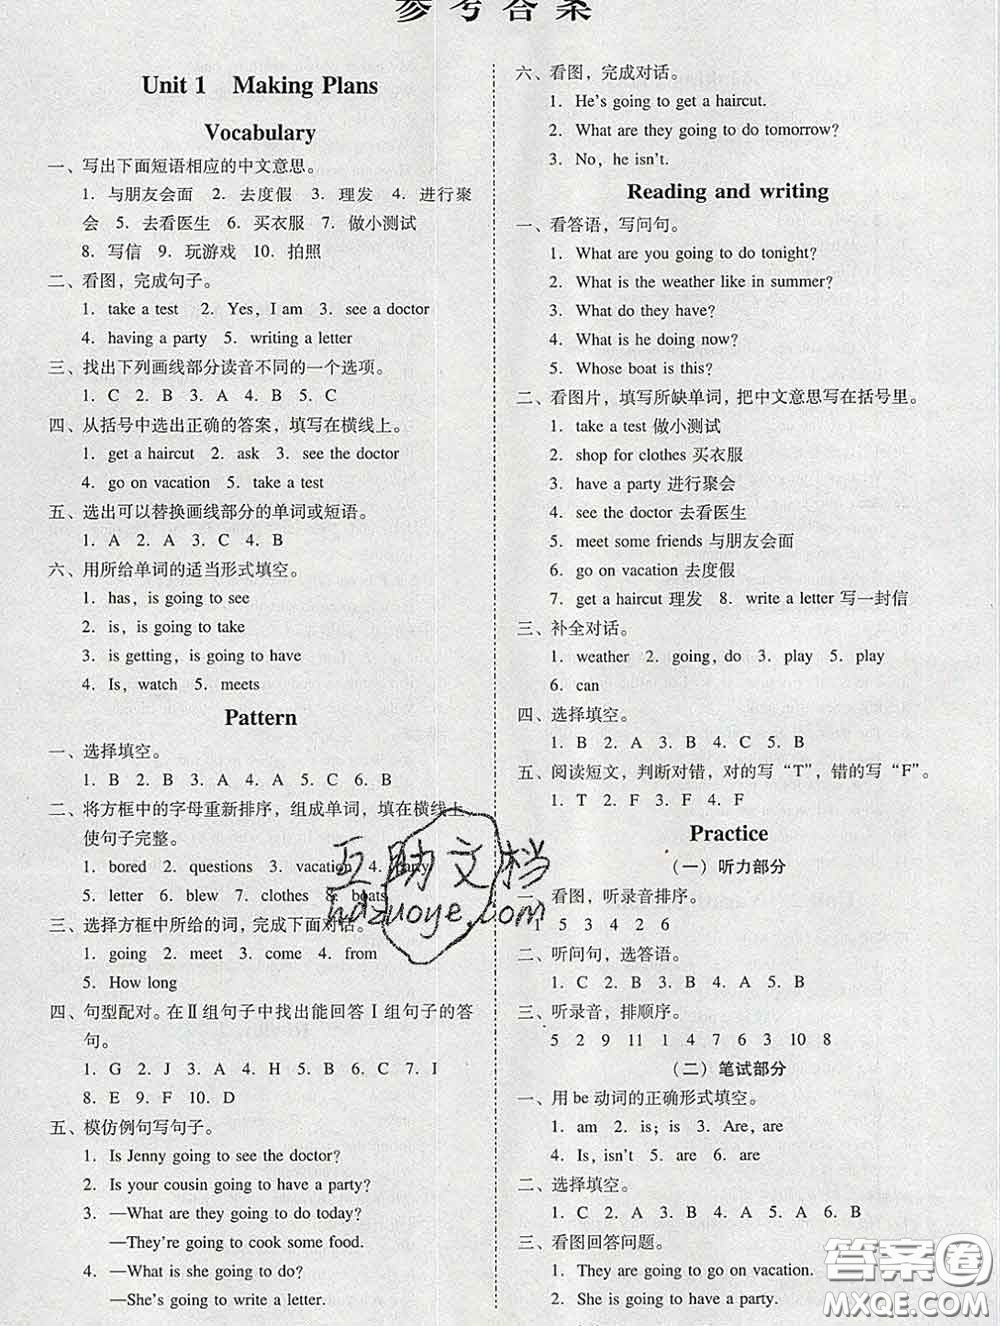 参考答案
Unit 1 Making Plans
Vocabulary
一、写出下面短语相应的中文意思。
1. 与朋友会面 2. 去度假 3. 理发 4. 进行聚
会 5. 去看医生 6. 买衣服 7. 做小测试
8. 写信 9. 玩游戏 10. 拍照
二、看图，完成句子。
1. take a test 2. Yes, I am 3. see a doctor
4. having a party 5. writing a letter
三、找出下列画线部分读音不同的一个选项。
1. C 2. B 3. A 4. B 5. C
四、从括号中选出正确的答案，填写在横线上。
1. get a haircut 2. ask 3. see the doctor
4. go on vacation 5. take a test
五、选出可以替换画线部分的单词或短语。
1. A 2. A 3. C 4. B
六、用所给单词的适当形式填空。
1. has, is going to see
2. is, is going to take
3. is getting, is going to have
4. Is, watch 5. meets
Pattern
一、选择填空。
1. B 2. B 3. A 4. A 5. C 6. B
二、将方框中的字母重新排序，组成单词，填在横线上，
使句子完整。
1. bored 2. questions 3. vacation 4.
5. letter 6. blew 7. clothes 8. boats
三、选择方框中所给的词，完成下面对话。
1. going 2. meet 3. come 4. from
5. How long
四、句型配对。在Ⅱ组句子中找出能回答Ⅰ组句子的答
句。
1. G 2. J 3. A 4. H 5. B 6. C 7. I
8. E 9. F 10. D
五、模仿例句写句子。
1. Is Jenny going to see the doctor?
2. Is your cousin going to have a party?
3. —What are they going to do today?
—They're going to cook some food.
4. —What is she going to do?
—She's going to write a letter.
六、看图，完成对话。
1. He's going to get a haircut.
2. What are they going to do tomorrow?
3. No, he isn't.
Reading and writing
一、看答语，写问句。
1. What are you going to do tonight?
2. What is the weather like in summer?
3. What do they have?
4. What is he doing now?
5. Whose boat is this?
二、看图片，填写所缺单词，把中文意思写在括号里。
1. take a test 做小测试
2. shop for clothes 买衣服
3. have a party 进行聚会
4. see the doctor 去看医生
5. meet some friends 与朋友会面
6. go on vacation 去度假
7. get a haircut 理发 8. write a letter 写一封信
三、补全对话。
1. weather 2. going, do 3. play 5. play
6. can
四、选择填空。
1. B 2. A 3. B 4. C 5. B
五、阅读短文，判断对错，对的写“T”，错的写“F”。
1. T 2. F 3. F 4. F
Practice
（一）听力部分
一、看图，听录音排序。
1 5 3 4 2 6
二、听问句，选答语。
1. C 2. B 3. A 4. B 5. A 6. C
三、听录音，排顺序。
5 2 9 11 1 4 7 6 3 10 8
（二）笔试部分
一、用 be 动词的正确形式填空。
1. am 2. is; is 3. Are, are
4. Is, isn't 5. are 6. are
二、选择填空。
1. C 2. A 3. B 4. B 5. A 6. B
三、看图回答问题。
1. They are going to go on vacation.
2. She is going to have a party.
互助文档
hdzuoye.com
答案圈
MXQE.COM